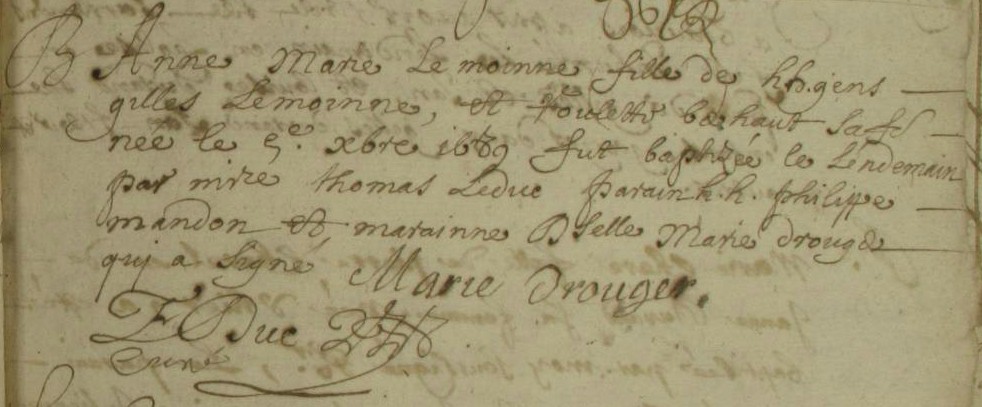 B Anne Marie Le moinne fille de hh. gens
gilles Lemoinne, et Poulette bechaut sa fe
née le 5e. xbre 1689 fut baptisée le Lendemain
par mre thomas Leduc parain h.h. philippe
mandon et marainne Dlelle Marie drouge
qui a signe Marie Drouger.
T Le Duc
Curé